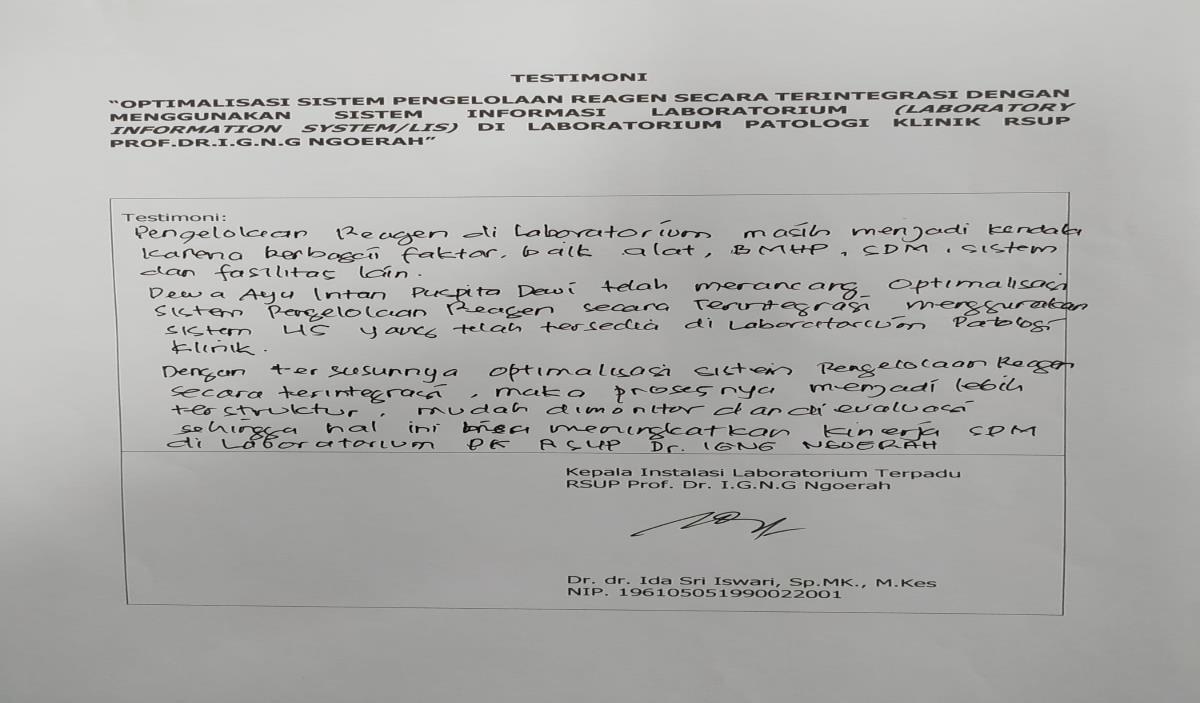 TESTIMONI
“OPTIMALISASI SISTEM PENGELOLAAN REAGEN SECARA TERINTEGRASI DENGAN
MENGGUNAKAN SISTEM INFORMASI LABORATORIUM (LABORATORY
INFORMATION SYSTEM/LIS) DI LABORATORIUM PATOLOGI KLINIK RSUP
PROF.DR.I.G.N.G NGOERAH”
Testimoni:
Pengelolaan Reagen di Laboratorium masih menjadi kendala
karena berbagai faktor. baik alat, BMHP, SDM, sistem
dan fasilitas lain.
Dewa Ayu Intan Puspita Dewi telah merancang Optimalisasi
Sistem Pengelolaan Reagen secara Terintegrasi menggunakan
sistem LIS yang telah tersedia di Laboratorium Patologi
Klinik.
Dengan tersusunnya optimalisasi sistem Pengelolaan Reagen
secara terintegrasi, maka prosesnya menjadi lebih
terstruktur, mudah dimonitor dan di evaluasi
sehingga hal ini bisa meningkatkan kinerja SDM
di Laboratorium PK RSUP Dr. IGNG NGOERAH
Kepala Instalasi Laboratorium Terpadu
RSUP Prof. Dr. I.G.N.G Ngoerah
Dr. dr. Ida Sri Iswari, Sp.MK., M.Kes
NIP. 196105051990022001